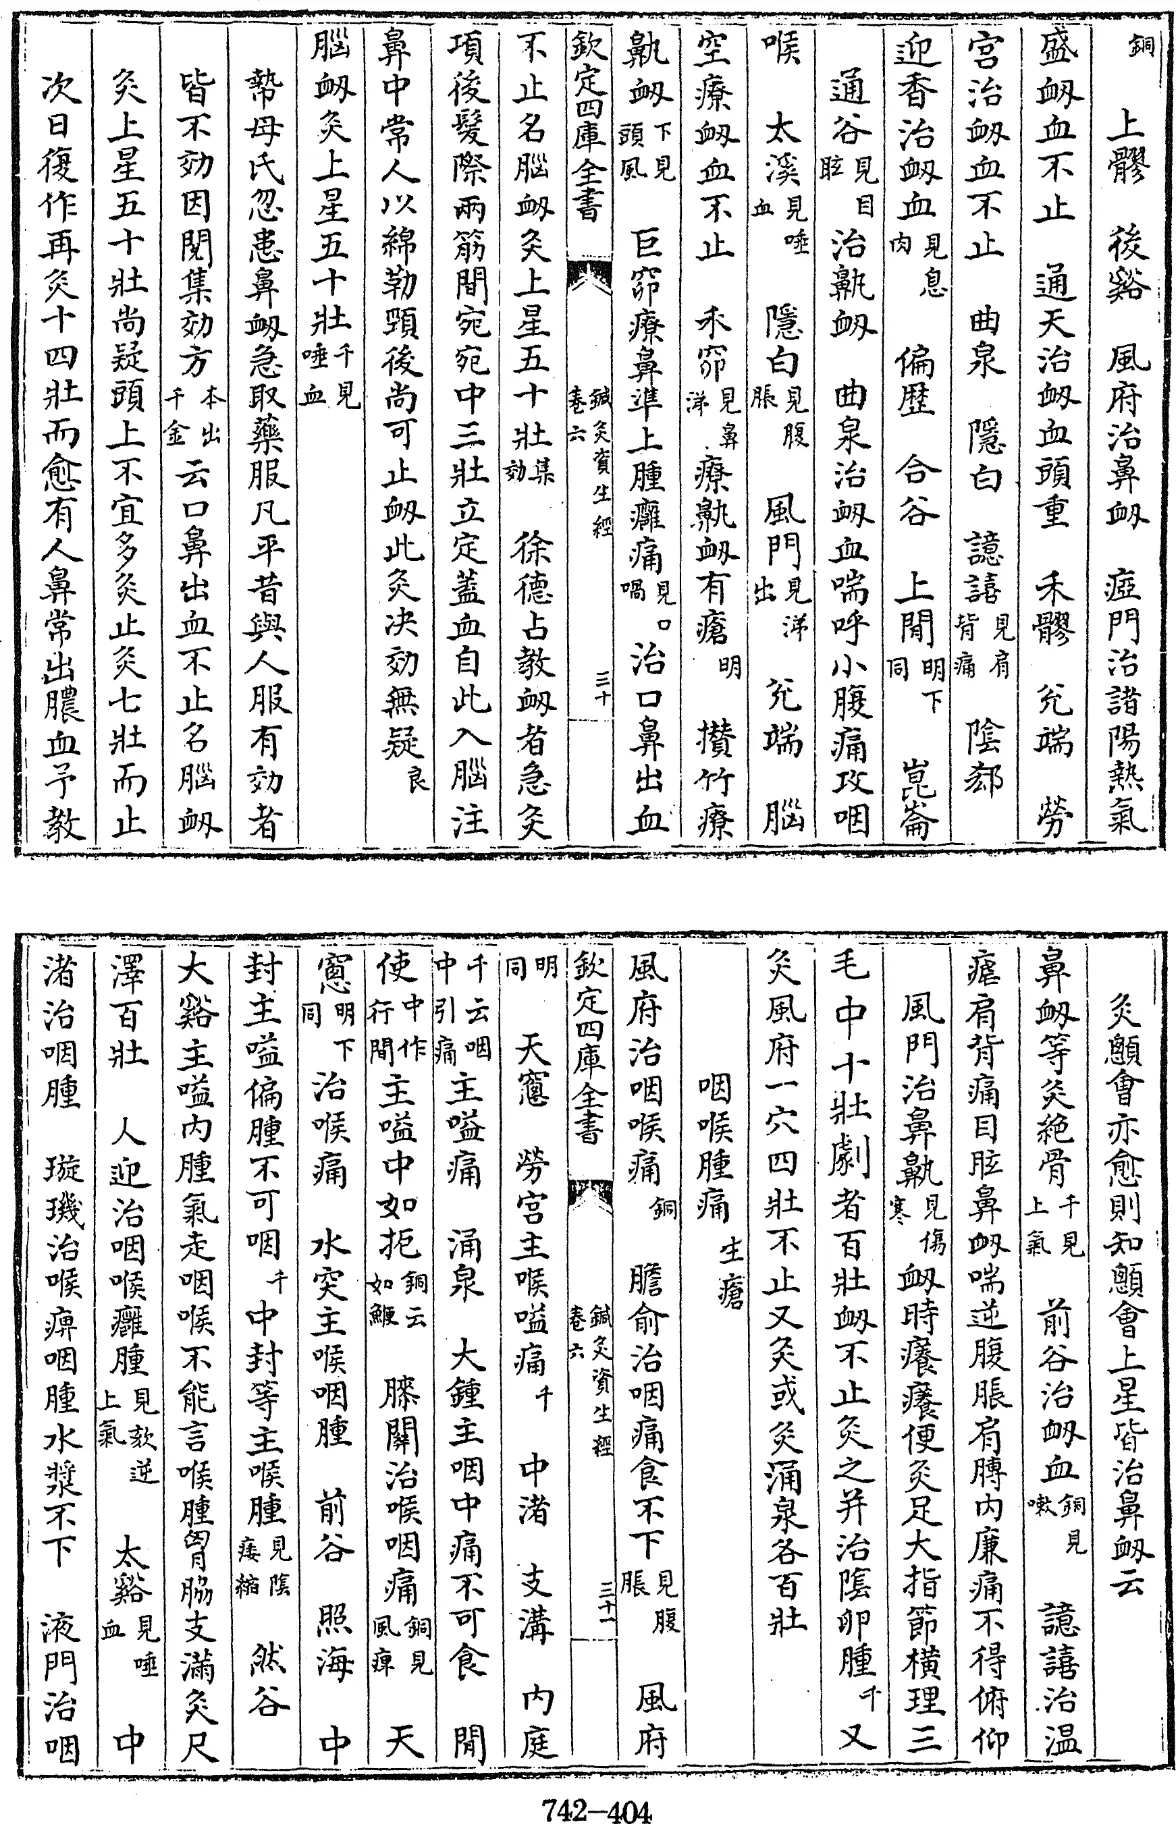 銅 上髎 後谿 風府治鼻衂 瘂門治諸陽熱氣
盛衂血不止 通天治衂血頭重 禾髎 兊端 勞
宮治衂血不止 曲泉 隱白 譩譆見肩背痛 陰郄
迎香治衂血見息肉 偏歴 合谷 上関明下同 崑崙
通谷見目眩治鼽衂 曲泉治衂血喘呼小腹痛攻咽
喉 太溪見唾血 隱白見腹脹 風門見涕出 兊端 腦
空療衂血不止 禾窌見鼻涕療鼽衂有瘡明 攢竹療
鼽衂下見頭風 巨窌療鼻準上腫癰痛見口喎治口鼻出血
欽定四庫全書 鍼灸資生經卷六 三十
不止名腦衂灸上星五十壯集効 徐德占教衂者急灸
項後髮際兩筋間宛宛中三壯立定蓋血自此入腦注
鼻中常人以綿勒頸後尚可止衂此灸决効無疑良
腦衂灸上星五十壯千見唾血
㷟母氏忽患鼻衂急取藥服凡平昔與人服有効者
皆不効因閱集効方本出千金云口鼻出血不止名腦衂
灸上星五十壯尚疑頭上不宜多灸止灸七壯而止
次日復作再灸十四壯而愈有人鼻常出膿血予教
灸顖會亦愈則知顖會上星皆治鼻衂云
鼻衂等灸絶骨千見上氣 前谷治衂血銅見嗽 譩譆治温
瘧肩背痛目眩鼻衂喘逆腹脹肩膊内廉痛不得俯仰
風門治鼻鼽見傷寒衂時癢癢便灸足大指節横理三
毛中十壯劇者百壯衂不止灸之并治陰卵腫千又
灸風府一穴四壯不止又灸或灸涌泉各百壯
咽喉腫痛生瘡
風府治咽喉痛銅 膽俞治咽痛食不下見腹脹 風府
欽定四庫全書 鍼灸資生經卷六 三十一
明同 天窻 勞宮主喉嗌痛千 中渚 支溝 内庭
千云咽中引痛主嗌痛 涌泉 大鍾主咽中痛不可食 閒
使中作行間主嗌中如扼銅云如鯁 膝關治喉咽痛銅見風痺 天
窻明下同治喉痛 水突主喉咽腫 前谷 照海 中
封主嗌偏腫不可咽千中封等主喉腫見陰痿縮 然谷
大谿主嗌内腫氣走咽喉不能言喉腫胷脇支滿灸尺
澤百壯 人迎治咽喉癰腫見欬逆上氣 太谿見唾血 中
渚治咽腫 璇璣治喉痺咽腫水漿不下 液門治咽
742-404